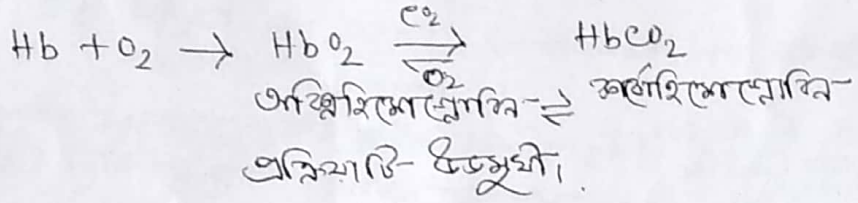 CO₂
Hb + O₂ → HbO₂ ⇌ HbCO₂
O₂
অক্সিহিমোগ্লোবিন ⇌ কার্বোহিমোগ্লোবিন
প্রক্রিয়াটি উভমুখী।